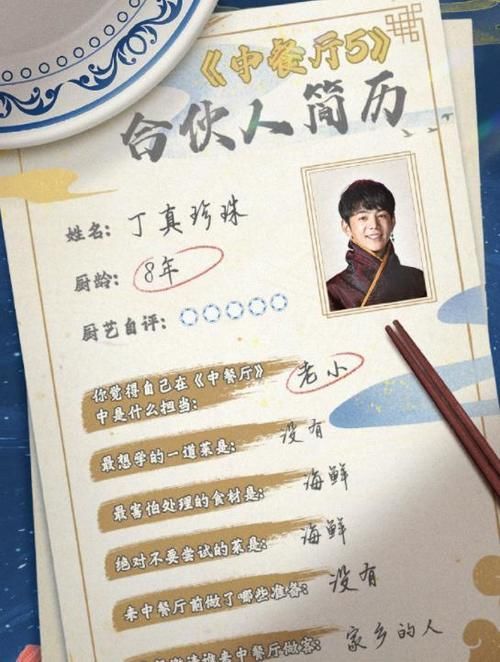 《中餐厅5》
合伙人简历
姓名：丁真珍珠
厨龄：8年
厨艺自评：
你觉得自己在《中餐厅》
中是什么担当：老小
最想学的一道菜是：没有
最害怕处理的食材是：海鲜
绝对不要尝试的菜是：海鲜
来中餐厅前做了哪些准备：没有
来中餐厅做客：家乡的人